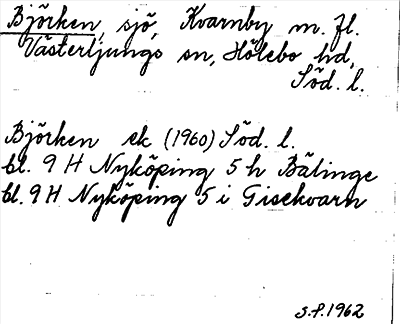 Björken, sjö, Kvarnby m. fl.
Västerljungs sn, Hölebo hd,
Söd. l.
Björken ek (1960) Söd. l.
bl. 9 H Nyköping 5 h Bälinge
bl. 9 H Nyköping 5 i Gisekvarn
S.P. 1962